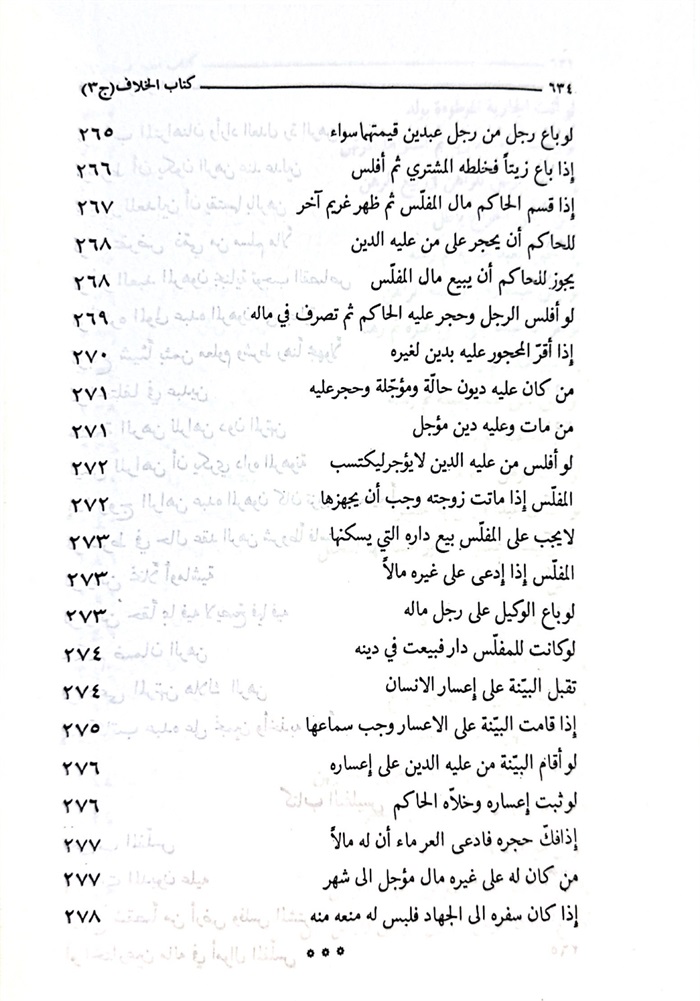 ٦٣٤ كتاب الخلاف (ج٣)
لو باع رجل من رجل عبدين قيمتهما سواء ٢٦٥
إذا باع زيتاً فخلطه المشتري ثم أفلس ٢٦٦
إذا قسم الحاكم مال المفلّس ثم ظهر غريم آخر ٢٦٧
للحاكم أن يحجر على من عليه الدين ٢٦٨
يجوز للحاكم أن يبيع مال المفلّس ٢٦٨
لو أفلس الرجل وحجر عليه الحاكم ثم تصرف في ماله ٢٦٩
إذا أقرّ المحجور عليه بدين لغيره ٢٧٠
من كان عليه ديون حالّة ومؤجّلة وحجر عليه ٢٧١
من مات وعليه دين مؤجل ٢٧١
لو أفلس من عليه الدين لا يؤجر ليكتسب ٢٧٢
المفلّس إذا ماتت زوجته وجب أن يجهزها ٢٧٢
لا يجب على المفلّس بيع داره التي يسكنها ٢٧٣
المفلّس إذا إدعى على غيره مالاً ٢٧٣
لو باع الوكيل على رجل ماله ٢٧٣
لو كانت للمفلّس دار فبيعت في دينه ٢٧٤
تقبل البيّنة على إعسار الانسان ٢٧٤
إذا قامت البيّنة على الاعسار وجب سماعها ٢٧٥
لو أقام البيّنة من عليه الدين على إعساره ٢٧٦
لو ثبت إعساره وخلاّه الحاكم ٢٧٦
إذا فكّ حجره فادعى العرماء أن له مالاً ٢٧٧
من كان له على غيره مال مؤجل الى شهر ٢٧٧
إذا كان سفره الى الجهاد فلبس له منعه منه ٢٧٨
* * *